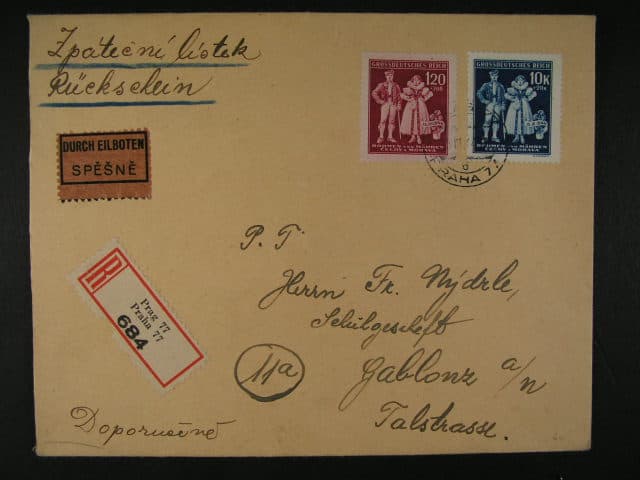 Zpáteční lístek
Rückschein
GROSSDEUTSCHES REICH
1.20
BÖHMEN UND MÄHREN
ČECHY A MORAVA
GROSSDEUTSCHES REICH
10K
BÖHMEN UND MÄHREN
ČECHY A MORAVA
PRAHA 77
DURCH EILBOTEN
SPĚŠNĚ
R
Prag 77
Praha 77
684
P. T
Herrn Fr. Nýdrle,
Schulgeschäft
Gablonz a/n
Talstrasse.
11a
Doporučeně